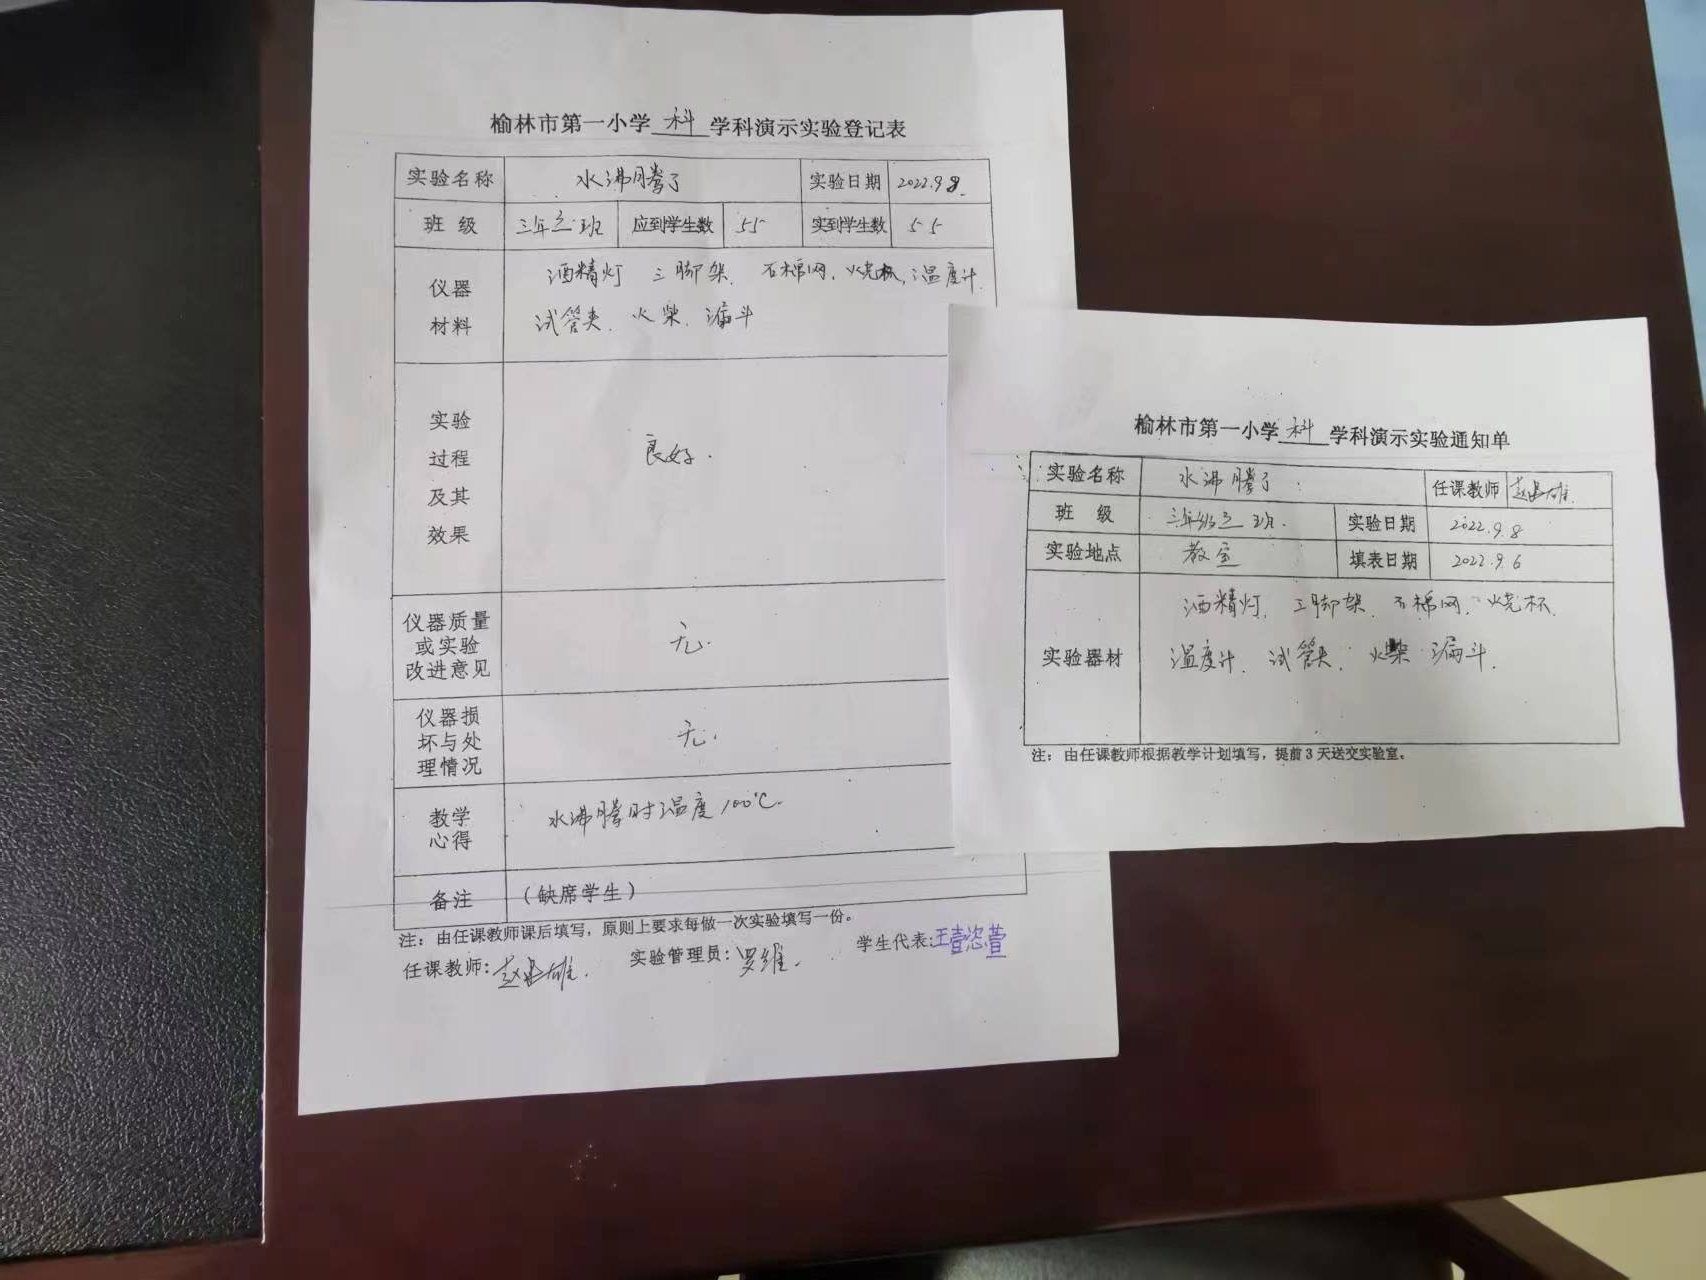 榆林市第一小学 科 学科演示实验登记表
实验名称 水沸腾了 实验日期 2022.9.8.
班 级 三年 班 应到学生数 55 实到学生数 55
仪器
材料
酒精灯 三脚架、石棉网、烧杯、温度计、
试管夹、火柴、漏斗
实验
过程
及其
效果
良好.
仪器质量
或实验
改进意见
无.
仪器损
坏与处
理情况
无.
教学
心得
水沸腾时温度100℃.
备注 (缺席学生)
注：由任课教师课后填写，原则上要求每做一次实验填写一份。
任课教师: 实验管理员:罗维. 学生代表:王壹恣萱
榆林市第一小学 科 学科演示实验通知单
实验名称 水沸腾了 任课教师
班 级 三年级 班. 实验日期 2022.9.8
实验地点 教室 填表日期 2022.9.6
实验器材
酒精灯、三脚架、石棉网、烧杯、
温度计、试管夹、火柴 漏斗.
注：由任课教师根据教学计划填写，提前3天送交实验室。